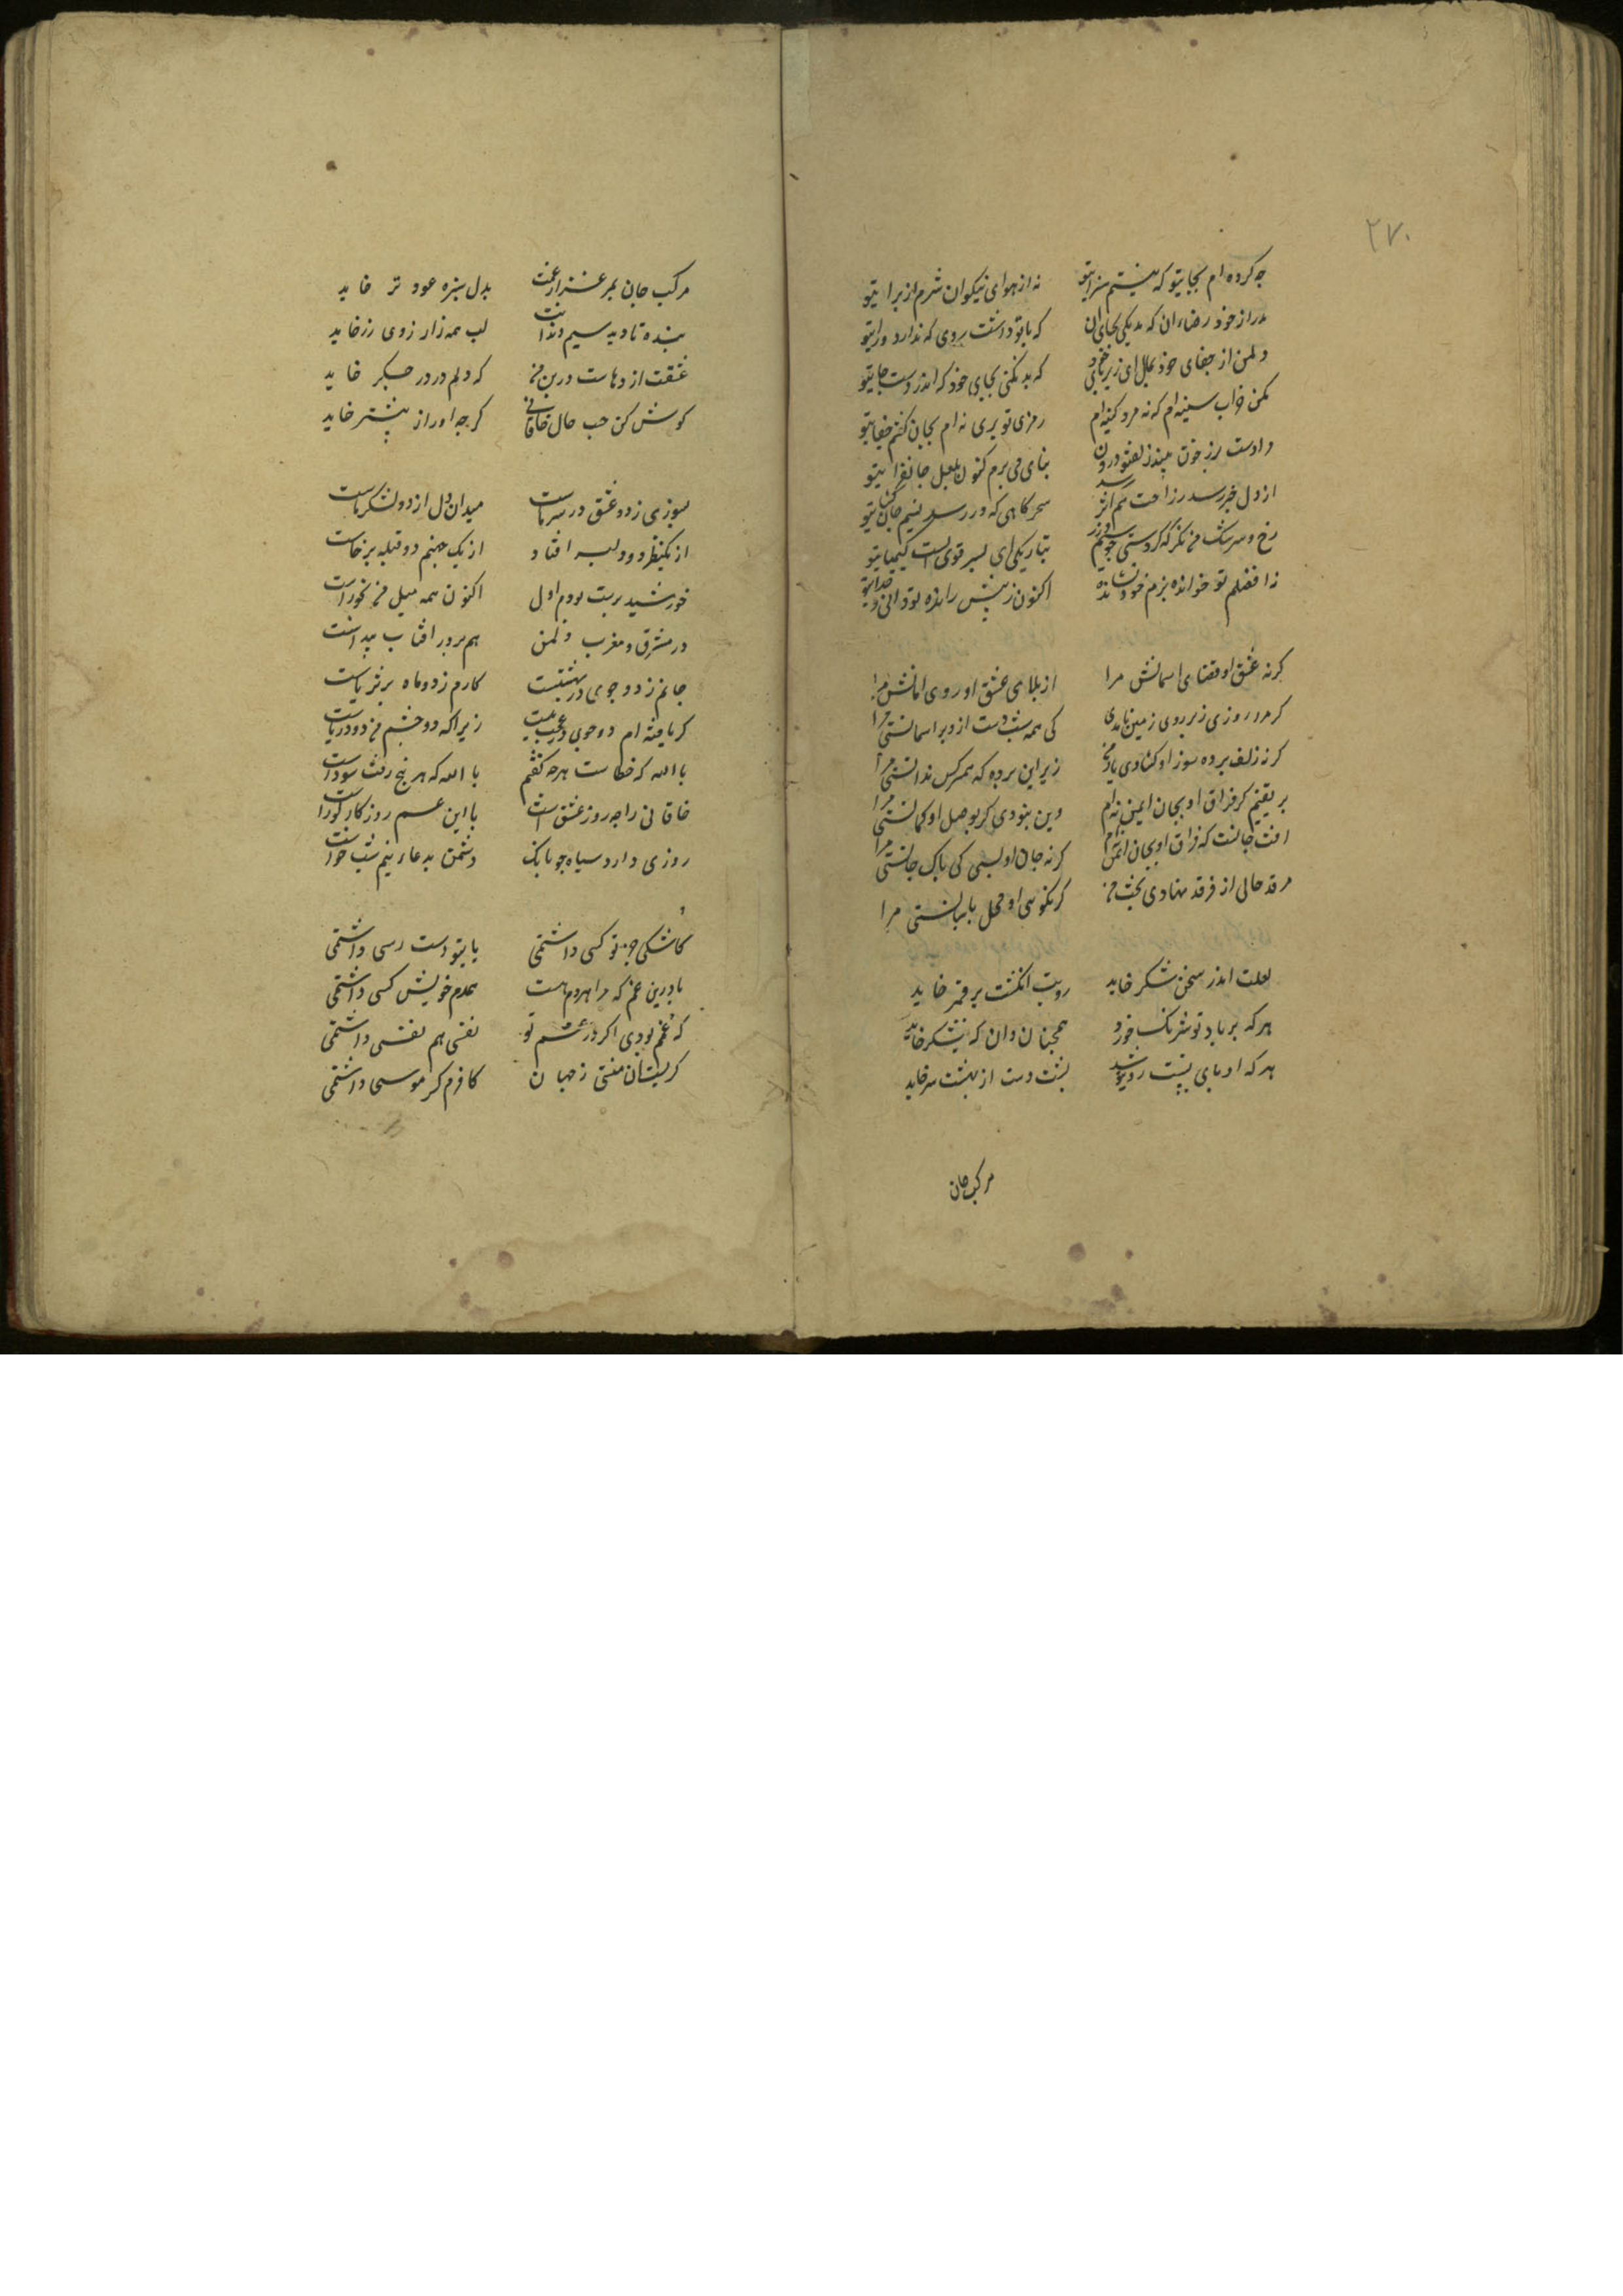 ۲۷۰
چه کرده ام بجایتو که نیستم سزایتو نه از هوای نیکوان شرم از برایتو
مدر از خود رضاء ان که بد یکی بجای ان که با تو داشت روی که ندارد ورایتو
دلمن از جفای خود ممال ای زیر که بد نکنی بجای خود که اندرست جایتو
مکن خراب سینه ام که نه مرد کینه ام ز مهر تو بری نه ام بجان کشم جفایتو
مرا دست رز خون میندز لعنو درون بنای می برم کنون بلعل جانفزایتو
از دل خبر رسد ز راحت هم اثر رسد سحر کاهی که در رسد نسیم جان
رخ و سرشک من نکر که کردستی جو سیم و زر تبارک ای پسر قویست کیمیایتو
نه افضلم تو خوانده بزم خود نشانده اکنون ز پیش رانده تو دانی و خدایتو
کرنه عشق او قضای اسمانستی مرا از بلای عشق او روی امانستی مرا
کر مرا روزی ز روی زمین بدی کی همه شب دست ازو بر اسمانستی مرا
کرنه زلف پرده سوز او کشادی زیر این پرده که هم کس ندانستی مرا
بر یقینم کز فراق او بجان ایمن نه ام وین بنودی کر بوصل او کمانستی مرا
افت جانست که فراق او بجان کرنه جان او بسی کی باک جانستی مرا
مرقد حالی از فرقد نهادی بخت من کر بکوی او محل پاسبانستی مرا
لعلت اندر سخن شکر خاید رویت انکشت بر قمر خاید
هر که بر یاد تو شرنک خورد همچنان دان که نیشکر خاید
هر که او پای بست روی تو شد پشت دست از نهیب سر خاید
مرکب جان
مرکب جان بمرغزار غمت بدل سبزه عود تر خاید
بنده تا دید سیم دندانت لب همه زارزوی زر خاید
عشقت اژدهاست در بن من که دلم درد و در جکر خاید
کوش کن حسب حال خاقانی کرچه او راز بیشتر خاید
سوزی ز دو عشق در سر ماست میدان دل از دو لشکر ماست
از یک نظرم دو دلبر افتاد از یک جهتم دو قبله برخاست
خورشید پرست بودم اول اکنون همه میل من بجوزاست
در مشرق و مغرب دلمن هم بدر و هم افتاب پیداست
جانم ز دو جوی در بهشتست کارم ز دو ماه بر ثریاست
کر یافته ام دو جوی عجب نیست زیرا که دو چشم من دو دریاست
با الله که خطاست هرچه کفتم با الله که هرنچ رفت سوداست
خاقانی را چه روز عشق است با این غم روزکار کوراست
روزی دارد سیاه جونانک دشمن بدعاء نیم شب خواست
کاشکی جز تو کسی داشتمی یا بتو دست رسی داشتمی
یا درین غم که مرا هردم هست همدم خویش کسی داشتمی
کی غمم بودی اکر در غم تو نفسی هم نفسی داشتمی
کر لبت ان منستی ز جهان کافرم کر هوسی داشتمی